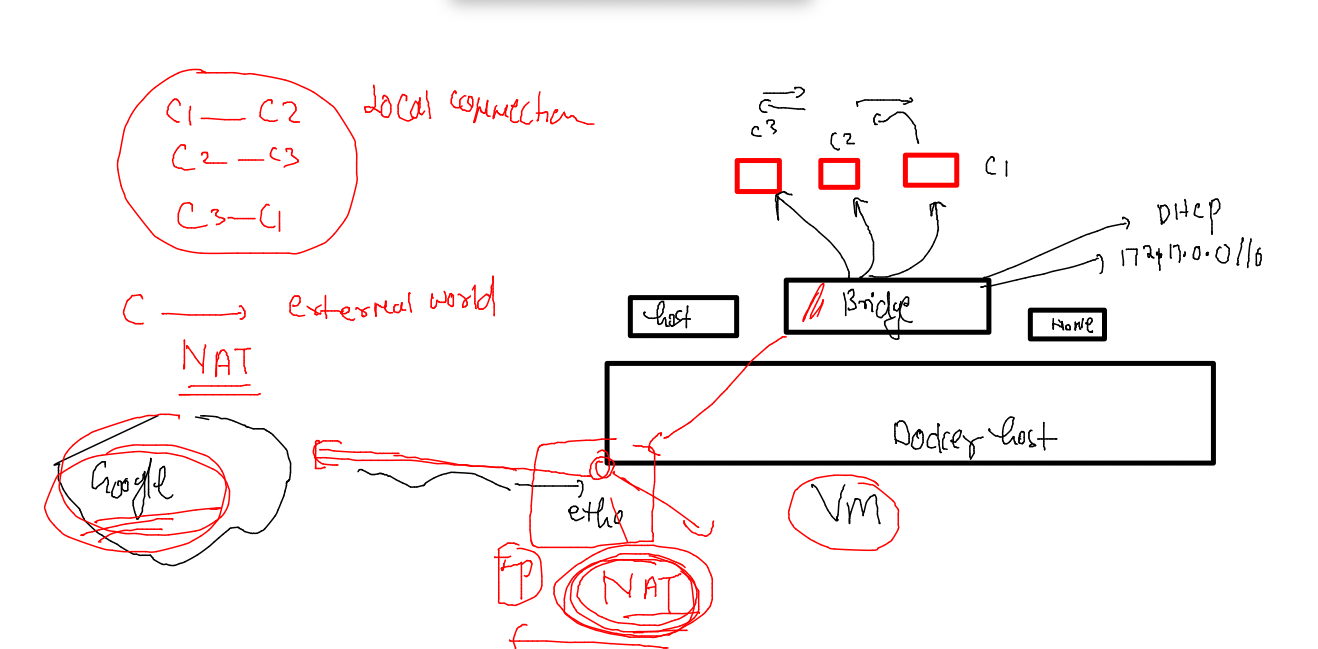 C1 — C2
Local connection
C2 — C3
C3 — C1
C → external world
NAT
Google
C3
C2
C1
DHCP
172.17.0.0/16
host
Bridge
None
Docker host
eth0
VM
IP
NAT